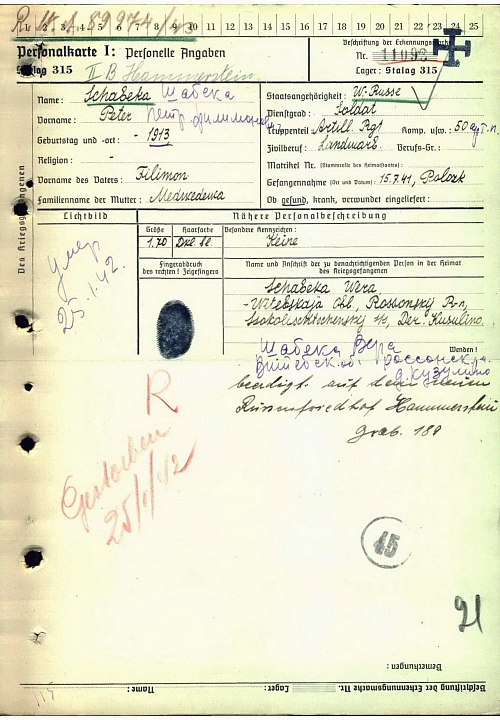 1 2 3 4 5 6 7 8 9 10 11 12 13 14 15 16 17 18 19 20 21 22 23 24 25
Personalkarte I: Personelle Angaben
Stalag 315 II B Hammerstein
Beschriftung der Erkennungsmarke
Nr. 11093
Lager: Stalag 315
Des Kriegsgefangenen
Name: Schabeka Шабека
Vorname: Peter Петр Филимонович
Geburtstag und -ort: - 1913
Religion: -
Vorname des Vaters: Filimon
Familienname der Mutter: Medwedewka
Staatsangehörigkeit: W-Russe
Dienstgrad: Soldat
Truppenteil: Artill. Rgt Komp. usw.: 50
Zivilberuf: Landwirt Berufs-Gr.:
Matrikel Nr. (Stammrolle des Heimatstaates):
Gefangennahme (Ort und Datum): 15.7.41, Polozk
Ob gesund, krank, verwundet eingeliefert:
Lichtbild
Nähere Personalbeschreibung
Größe Haarfarbe Besondere Kennzeichen:
1.70 Keine
Fingerabdruck
des rechten! Zeigefingers
Name und Anschrift der zu benachrichtigenden Person in der Heimat
des Kriegsgefangenen
Schabeka Wera
Witebskaja Obl, Rossonskij R-n,
Der. Kusulino
Шабека Вера
Витебск. об. Россонск. р.
д. Кузулино
Wenden!
умер
25.1.42.
beerdigt auf dem
Russenfriedhof Hammerstein
Grab. 189
R
Gestorben
25/1/42
45
91
Bemerkungen:
Name: Lager: Beschriftung der Erkennungsmarke Nr.